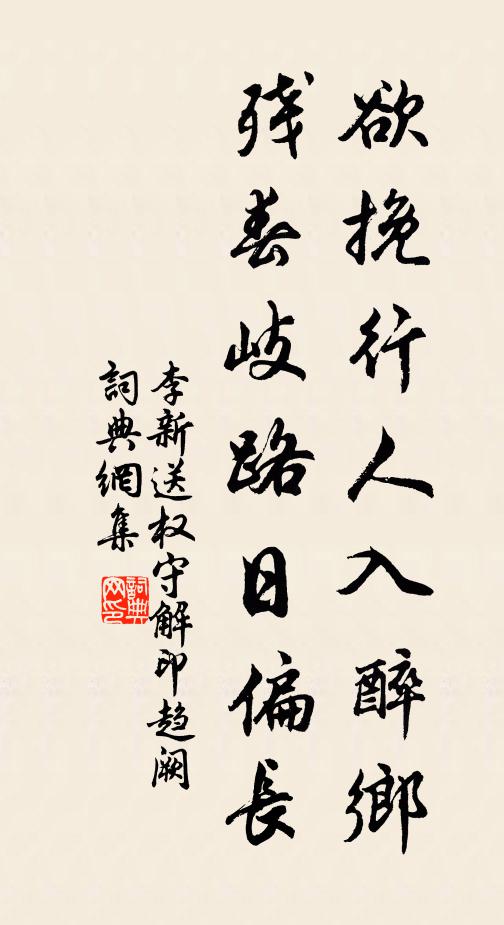 欲挽行人入醉鄉
残春岐路日偏長
李新送权守解印趋阙
詞典網集
詞典网印